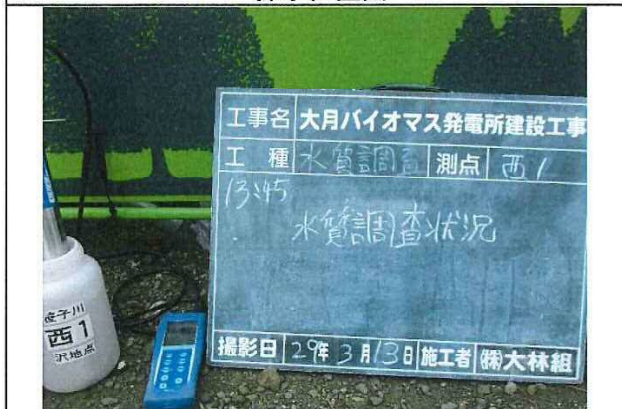 工事名 大月バイオマス発電所建設工事
工種 水質調査 測点 西1
13:45
水質調査状況
撮影日 29年3月13日 施工者 (株)大林組
笹子川
西1
沢地点